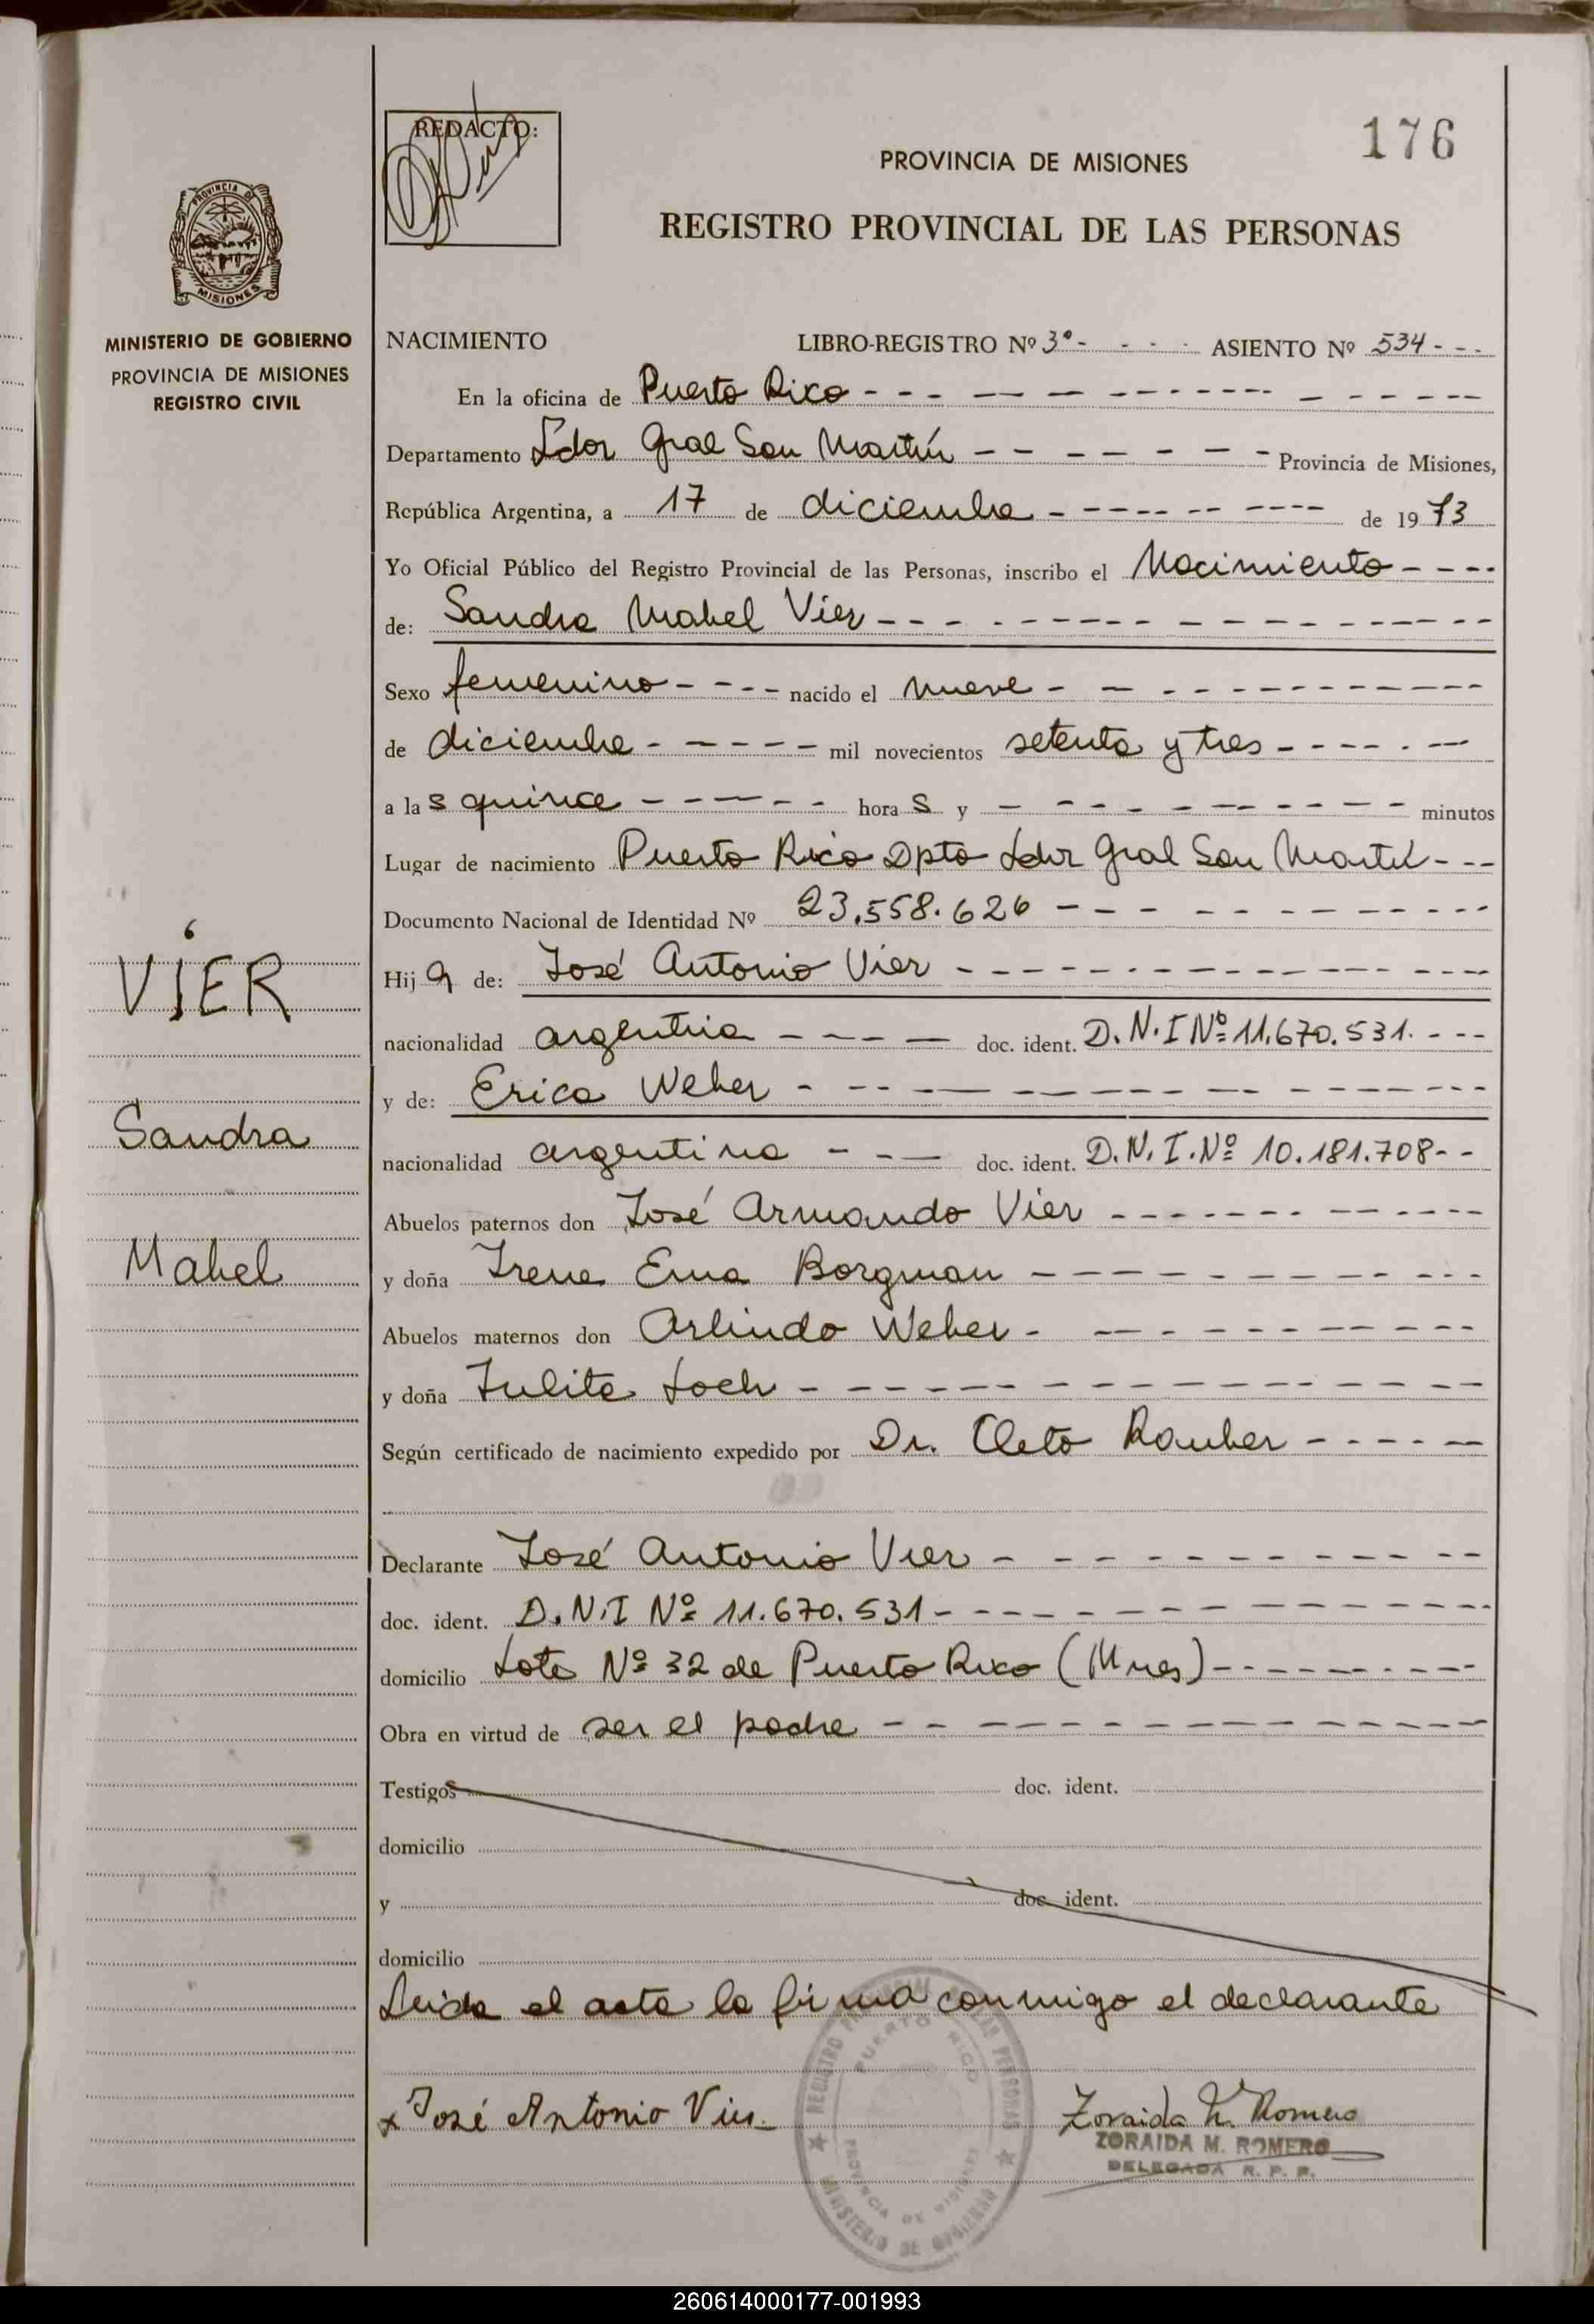 REDACTO:
176
PROVINCIA DE MISIONES
REGISTRO PROVINCIAL DE LAS PERSONAS
PROVINCIA DE
MISIONES
MINISTERIO DE GOBIERNO
PROVINCIA DE MISIONES
REGISTRO CIVIL
NACIMIENTO LIBRO-REGISTRO Nº 3º - - - - ASIENTO Nº 534 - - -
En la oficina de Puerto Rico
Departamento Ldor Gral San Martín Provincia de Misiones,
República Argentina, a 17 de diciembre de 1973
Yo Oficial Público del Registro Provincial de las Personas, inscribo el Nacimiento
de: Sandra Mabel Vier
Sexo femenino nacido el nueve
de diciembre mil novecientos setenta y tres
a las quince horas y minutos
Lugar de nacimiento Puerto Rico Dpto Ldor Gral San Martín
Documento Nacional de Identidad Nº 23.558.626
VIER
Hija de: José Antonio Vier
nacionalidad argentina doc. ident. D.N.I Nº 11.670.531.
y de: Erica Weber
Sandra
nacionalidad argentina doc. ident. D.N.I.Nº 10.181.708
Abuelos paternos don José Armando Vier
Mabel
y doña Irene Ema Borgman
Abuelos maternos don Arlindo Weber
y doña Julita Loch
Según certificado de nacimiento expedido por Dr. Cleto Rauber
Declarante José Antonio Vier
doc. ident. D.N.I Nº 11.670.531
domicilio Lote Nº 32 de Puerto Rico (Mnes)
Obra en virtud de ser el padre
Testigos doc. ident.
domicilio
y doc. ident.
domicilio
Leida el acta la firma conmigo el declarante
x José Antonio Vier
Zoraida M. Romero
ZORAIDA M. ROMERO
DELEGADA R. P. P.
REGISTRO PROVINCIAL DE LAS PERSONAS
PUERTO RICO
PROVINCIA DE MISIONES
MINISTERIO DE GOBIERNO
260614000177-001993